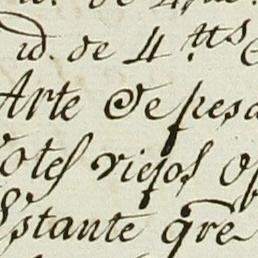 id. de 4 tts
Arte de pesa
otes viejos
Estante qre